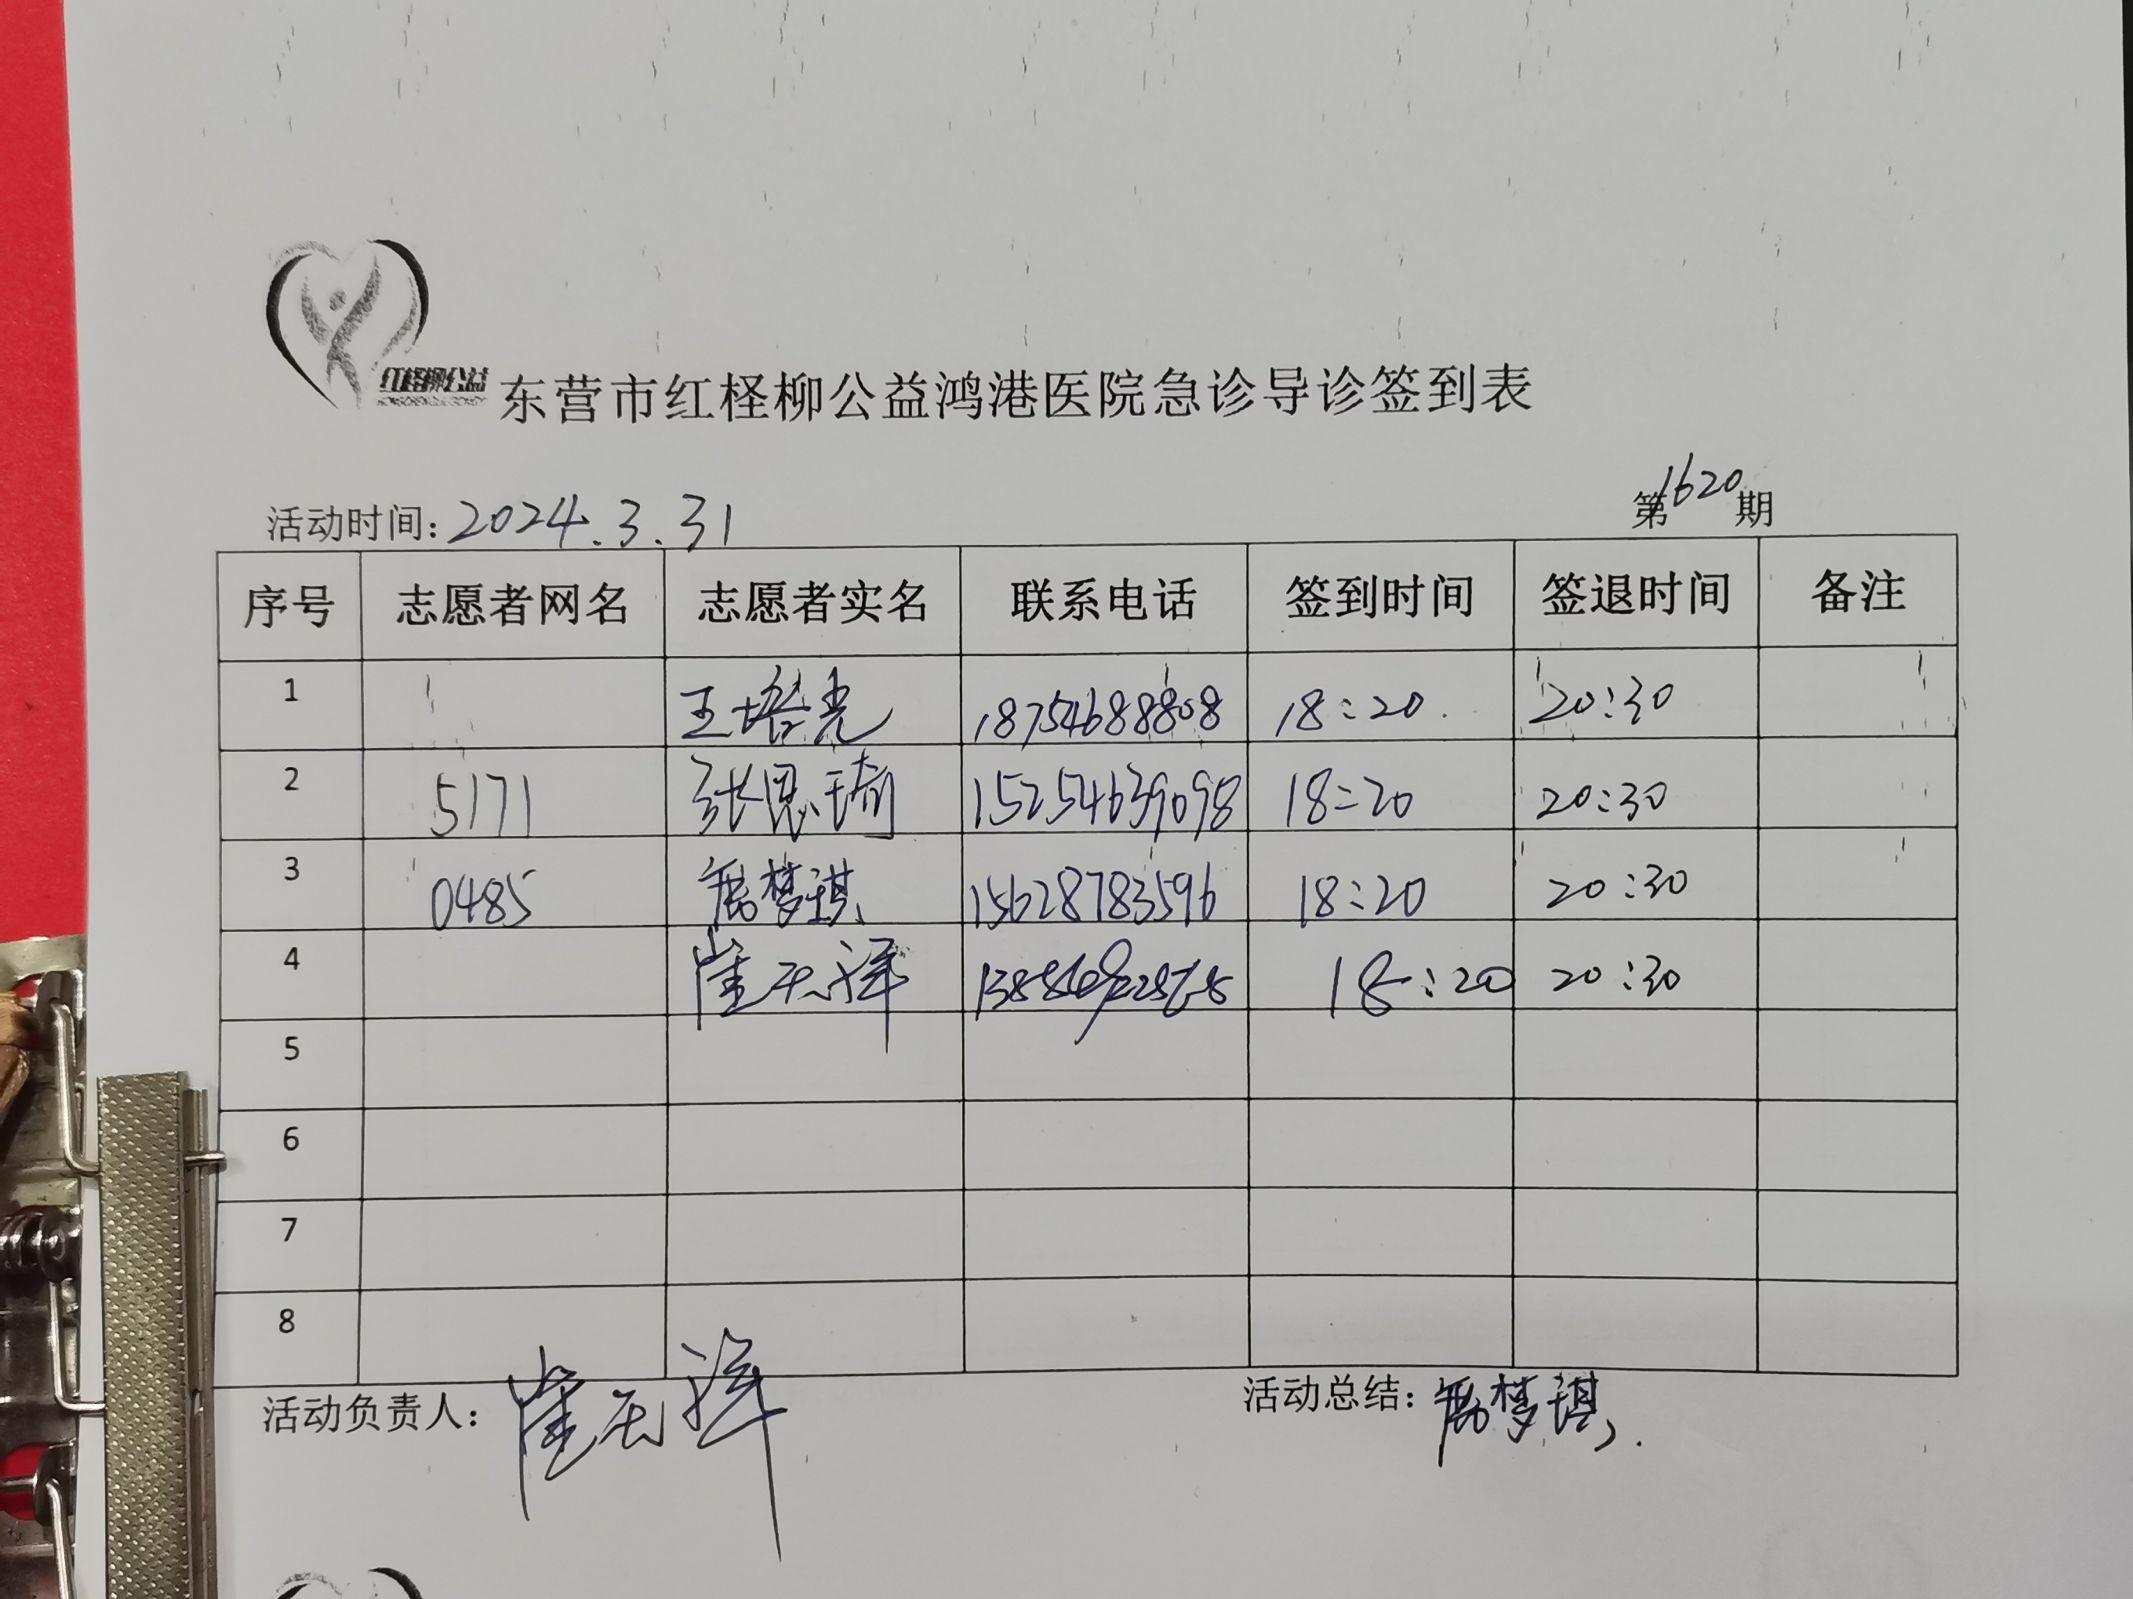 红柽柳公益
东营市红柽柳公益鸿港医院急诊导诊签到表
活动时间: 2024.3.31 第1620期
序号 志愿者网名 志愿者实名 联系电话 签到时间 签退时间 备注
1 王培尧 18754688808 18:20 20:30
2 5171 张恩琦 15254639098 18:20 20:30
3 0485 梦琪 15628783596 18:20 20:30
4 崔天祥 18:20 20:30
5
6
7
8
活动负责人: 崔天祥 活动总结: 梦琪